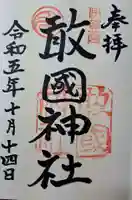 奉拝
敢國神社
令和五年十月十四日